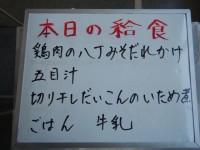 本日の給食
鶏肉の八丁みそだれかけ
五目汁
切り干しだいこんのいため煮
ごはん 牛乳